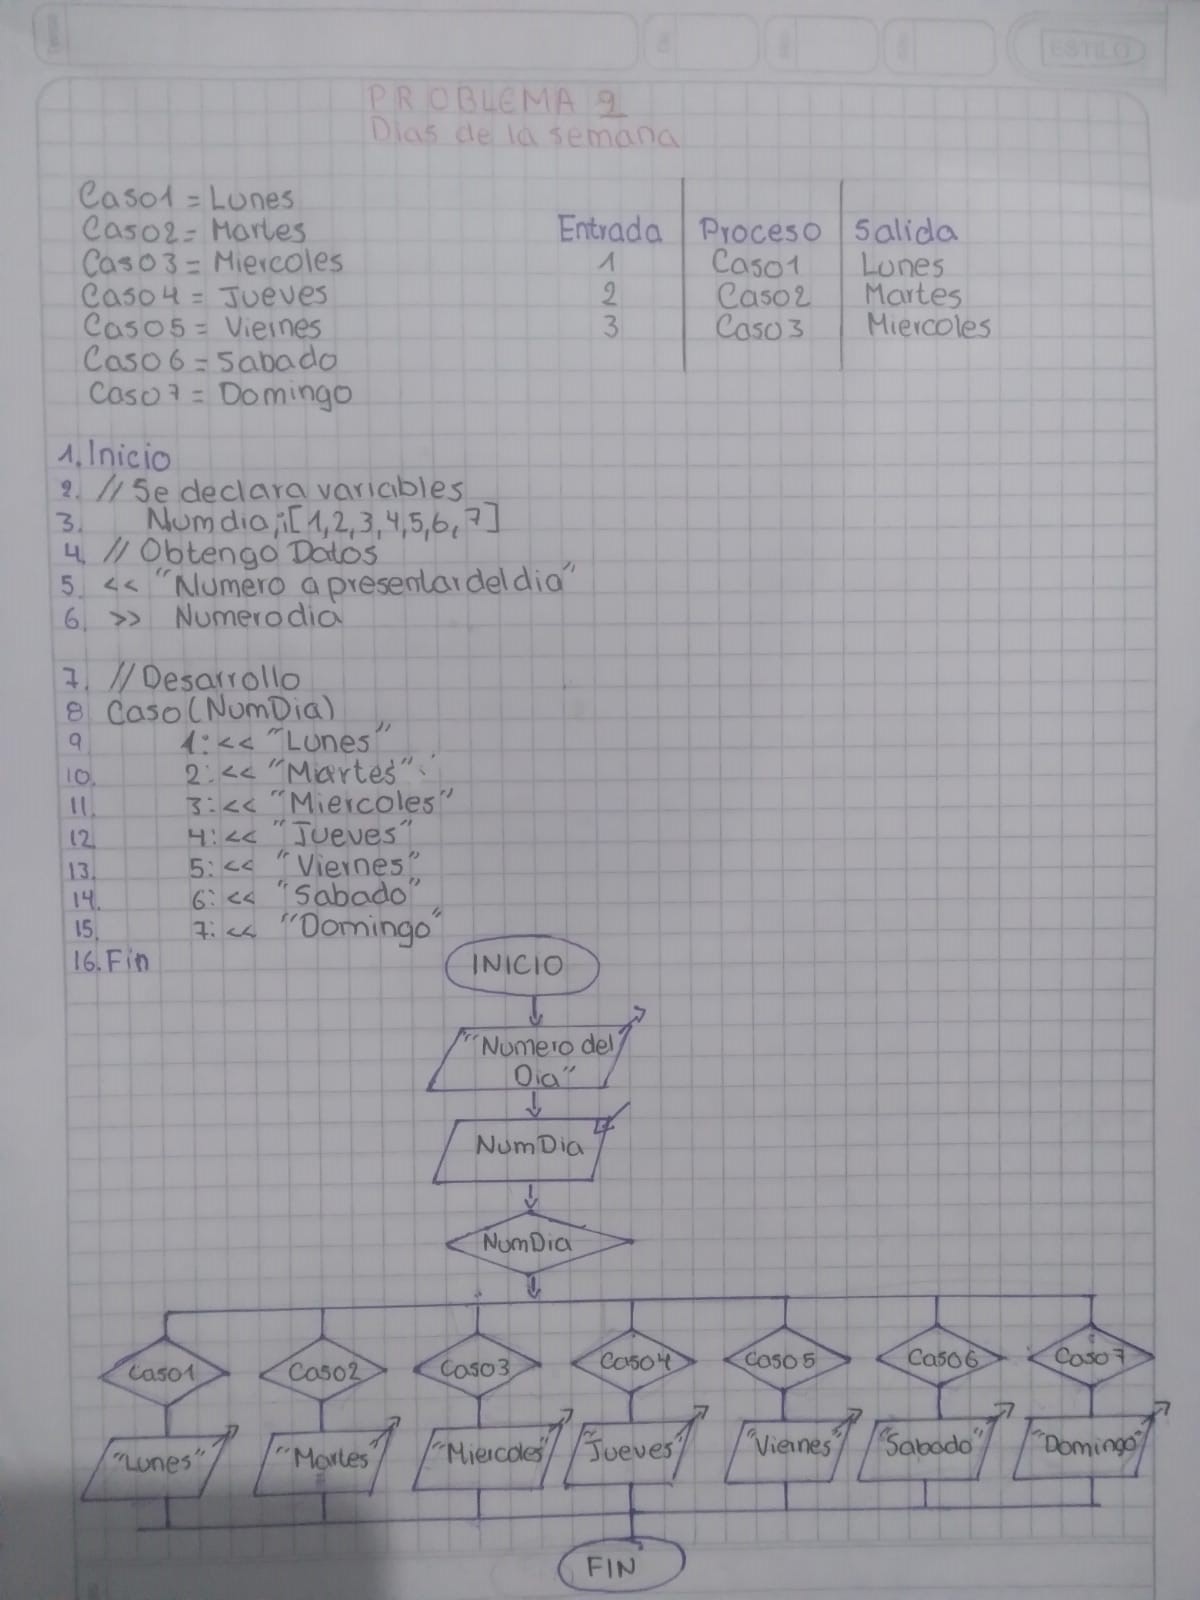 ESTILO
PROBLEMA 2
Dias de la semana
Caso1 = Lunes
Caso2 = Martes
Caso3 = Miercoles
Caso4 = Jueves
Caso5 = Viernes
Caso6 = Sabado
Caso7 = Domingo
Entrada Proceso Salida
1 Caso1 Lunes
2 Caso2 Martes
3 Caso3 Miercoles
1. Inicio
2. // Se declara variables
3. Numdia,i[1,2,3,4,5,6,7]
4. // Obtengo Datos
5. << "Numero a presentar del dia"
6. >> Numerodia
7. // Desarrollo
8 Caso(NumDia)
9 1: << "Lunes"
10. 2: << "Martes"
11. 3: << "Miercoles"
12. 4: << "Jueves"
13. 5: << "Viernes"
14. 6: << "Sabado"
15. 7: << "Domingo"
16. Fin
INICIO
"Numero del
Dia"
NumDia
NumDia
Caso1 Caso2 Caso3 Caso4 Caso5 Caso6 Caso7
"Lunes" "Martes" "Miercoles" "Jueves" "Viernes" "Sabado" "Domingo"
FIN